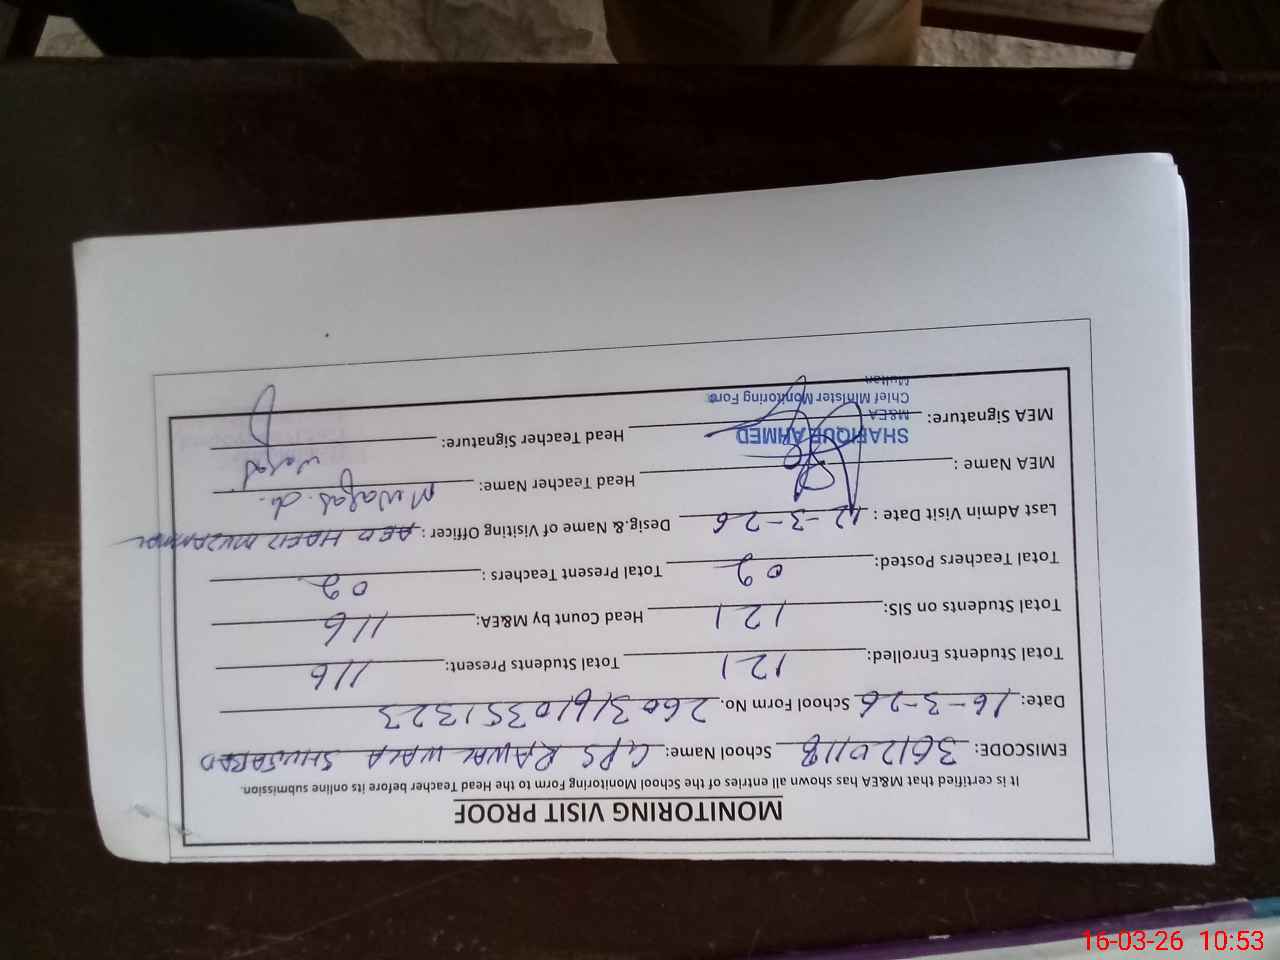 MONITORING VISIT PROOF
It is certified that M&EA has shown all entries of the School Monitoring Form to the Head Teacher before its online submission.
EMISCODE: 36120118 School Name: GPS RAWAL WALA SHUJABAD
Date: 16-3-26 School Form No. 2603161035 1323
Total Students Enrolled: 121 Total Students Present: 116
Total Students on SIS: 121 Head Count by M&EA: 116
Total Teachers Posted: 02 Total Present Teachers: 02
Last Admin Visit Date: 12-3-26 Desig.& Name of Visiting Officer: AEO HAFIZ MUZAMMAL
MEA Name: Head Teacher Name:
MEA Signature: Head Teacher Signature:
SHAFIQUE AHMED
M&EA
Chief Minister Monitoring Force
Multan
16-03-26 10:53